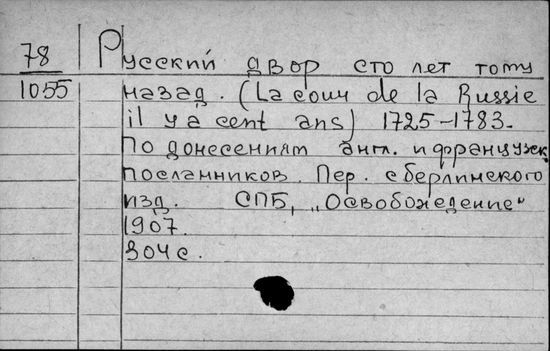 78 Русский двор сто лет тому
1055 назад. (La cour de la Russie
il y a cent ans) 1725-1783.
По донесениям англ. и француzск.
посланников. Пер. с берлинского
изд. СПБ, „Освобождение"
1907.
304 с.